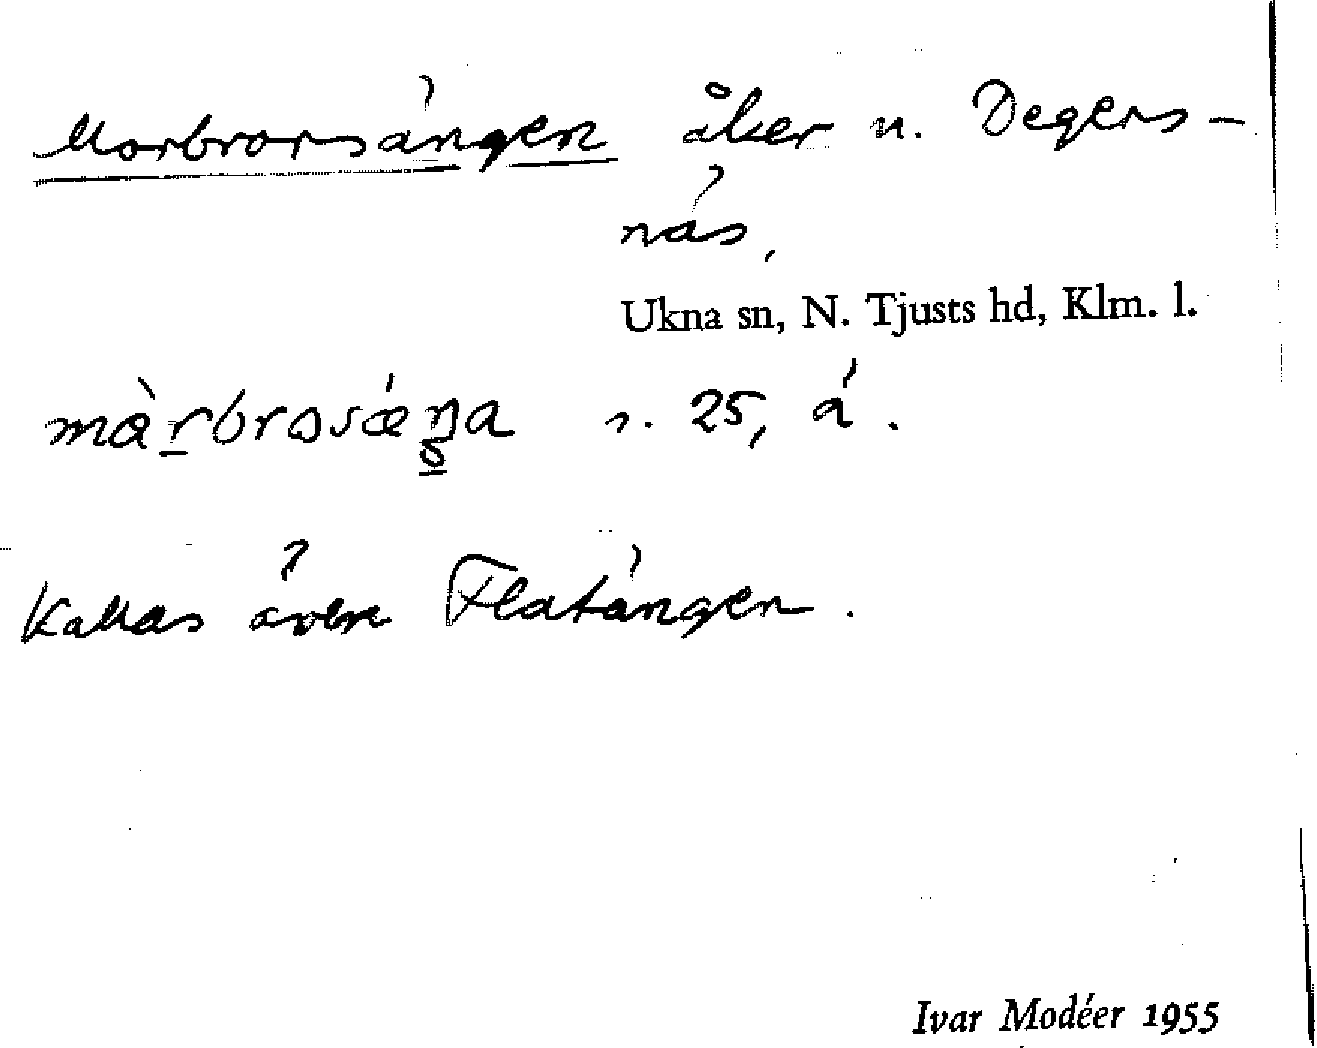 Morbrorsängen åker u. Degers-
näs,
Ukna sn, N. Tjusts hd, Klm. l.
s. 25, ä.
Kallas även Flatängen.
Ivar Modéer 1955